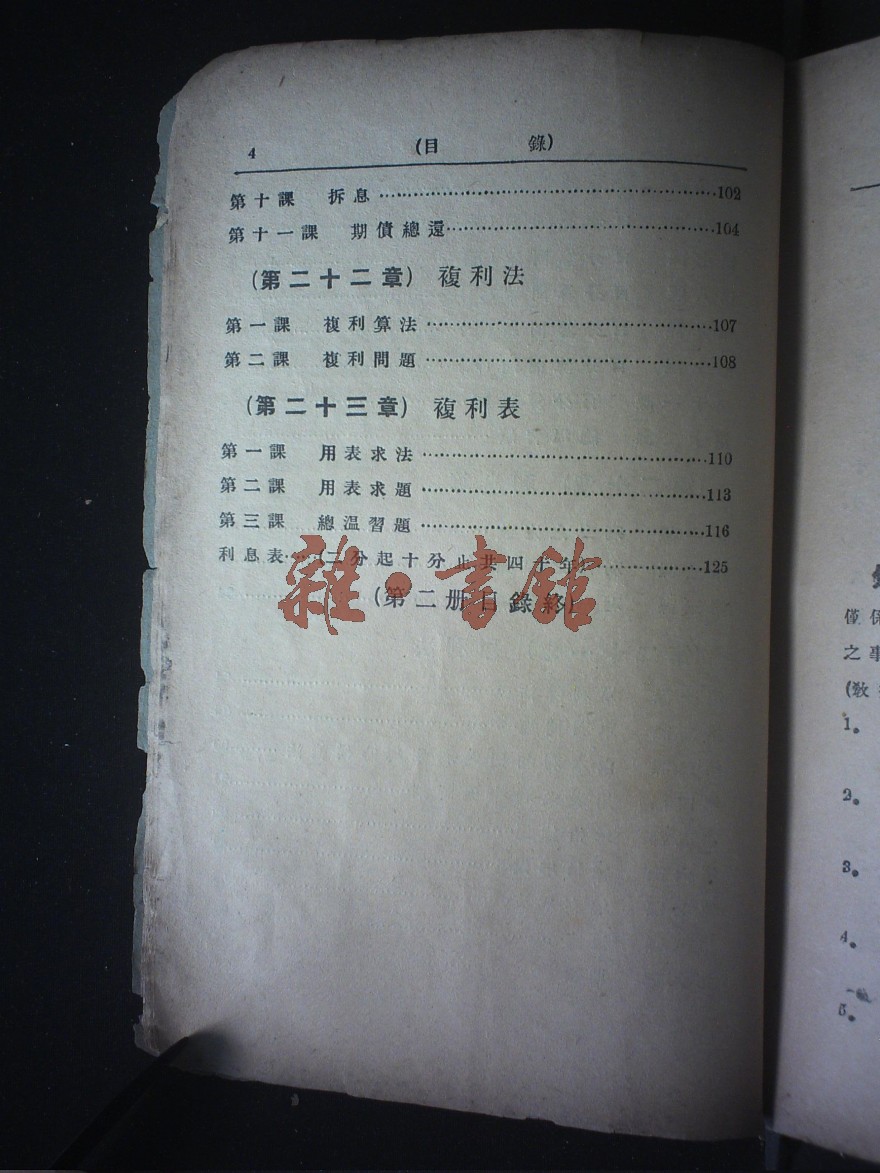 4 (目 錄)
第十課 拆息…………102
第十一課 期債總還…………104
(第二十二章) 複利法
第一課 複利算法…………107
第二課 複利問題…………108
(第二十三章) 複利表
第一課 用表求法…………110
第二課 用表求題…………113
第三課 總温習題…………116
利息表……(二分起十分止共四十年)…………125
(第二册目錄終)
雜·書館
僅係
之事
(敎
1.
2.
3.
4.
5.